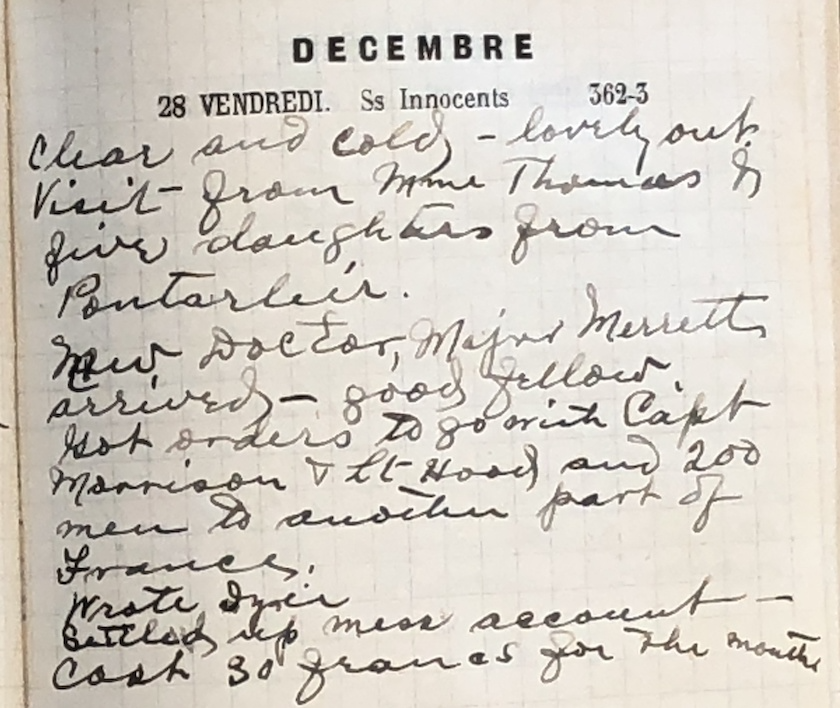 DECEMBRE
28 VENDREDI. Ss Innocents 362-3
Clear and cold – lovely out
Visit from Mme Thomas &
five daughters from
Pontarleir.
New Doctor, Major Merrett
arrived – good fellow.
Got orders to go with Capt
Morrison & Lt Hood and 200
men to another part of
France.
Wrote
Settled up mess account –
Cost 30 francs for the month